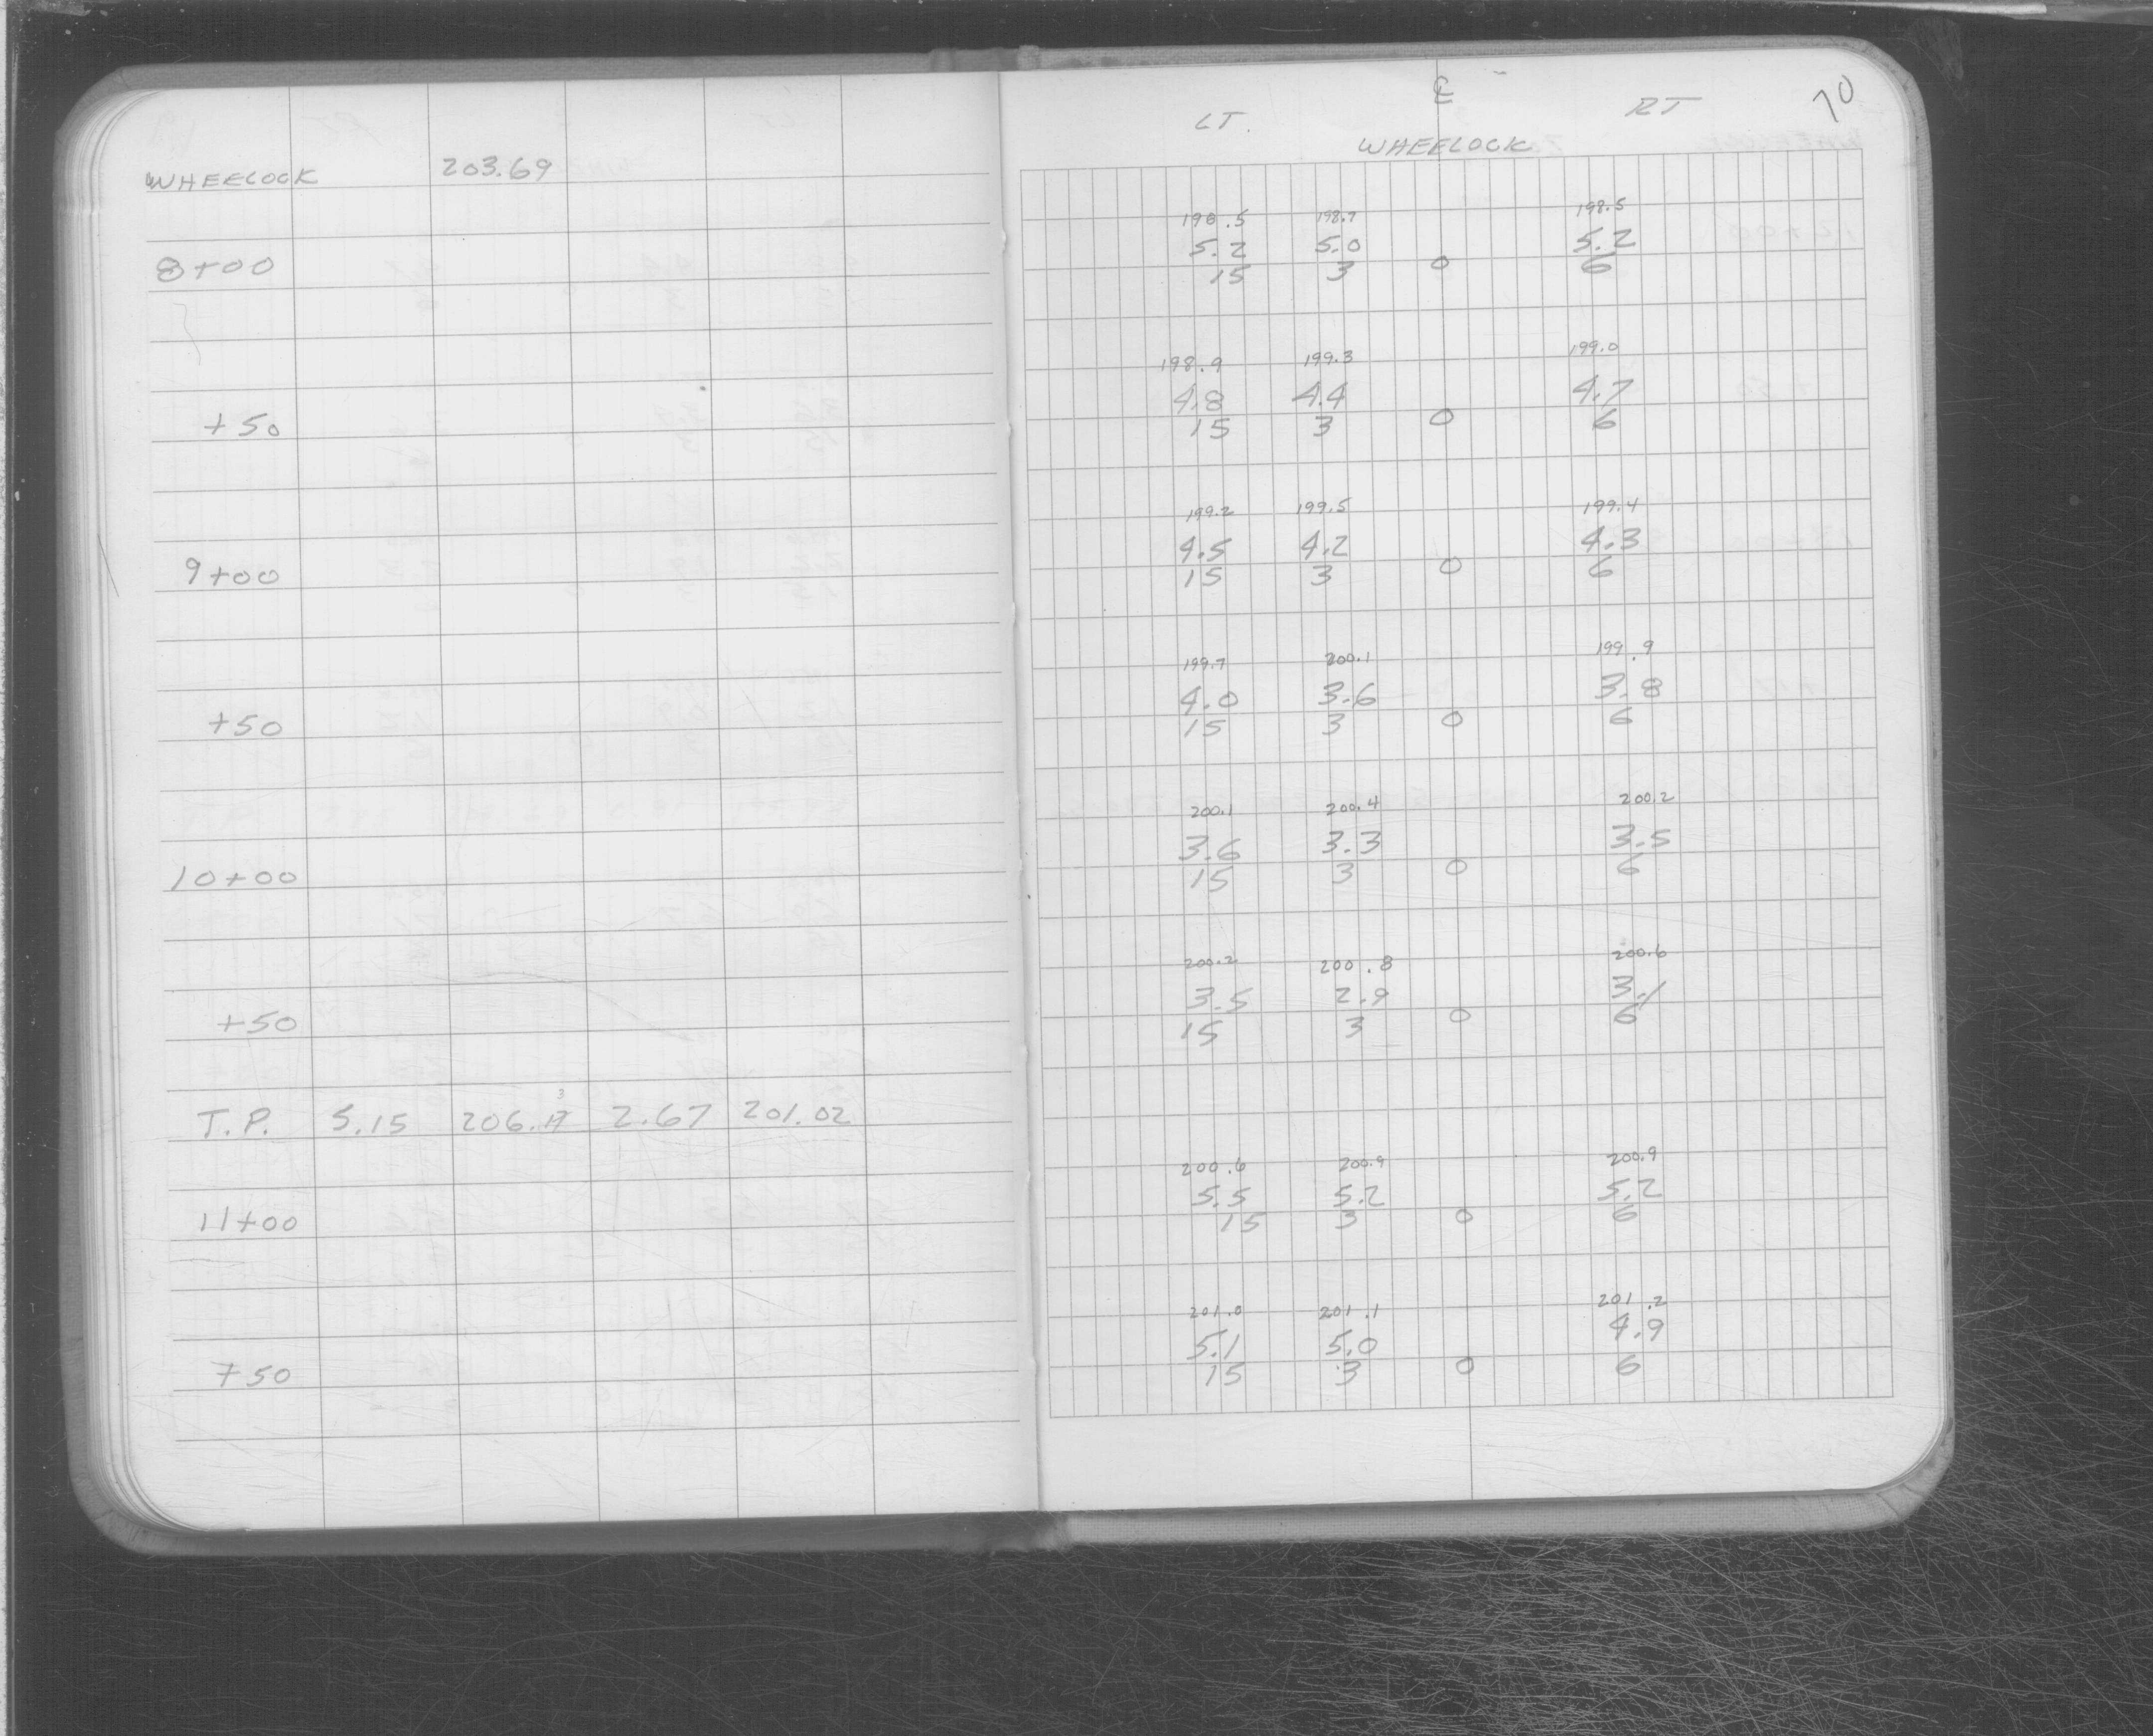 WHEELOCK 203.69
8+00
+50
9+00
+50
10+00
+50
T.P. 5.15 206.17 2.67 201.02
3
11+00
+50
70
LT. ℄ RT
WHEELOCK
198.5 198.7 198.5
5.2 5.0 5.2
15 3 0 6
198.9 199.3 199.0
4.8 4.4 4.7
15 3 0 6
199.2 199.5 199.4
4.5 4.2 4.3
15 3 0 6
199.7 200.1 199.9
4.0 3.6 3.8
15 3 0 6
200.1 200.4 200.2
3.6 3.3 3.5
15 3 0 6
200.2 200.8 200.6
3.5 2.9 3.1
15 3 0 6
200.6 200.9 200.9
5.5 5.2 5.2
15 3 0 6
201.0 201.1 201.2
5.1 5.0 4.9
15 3 0 6